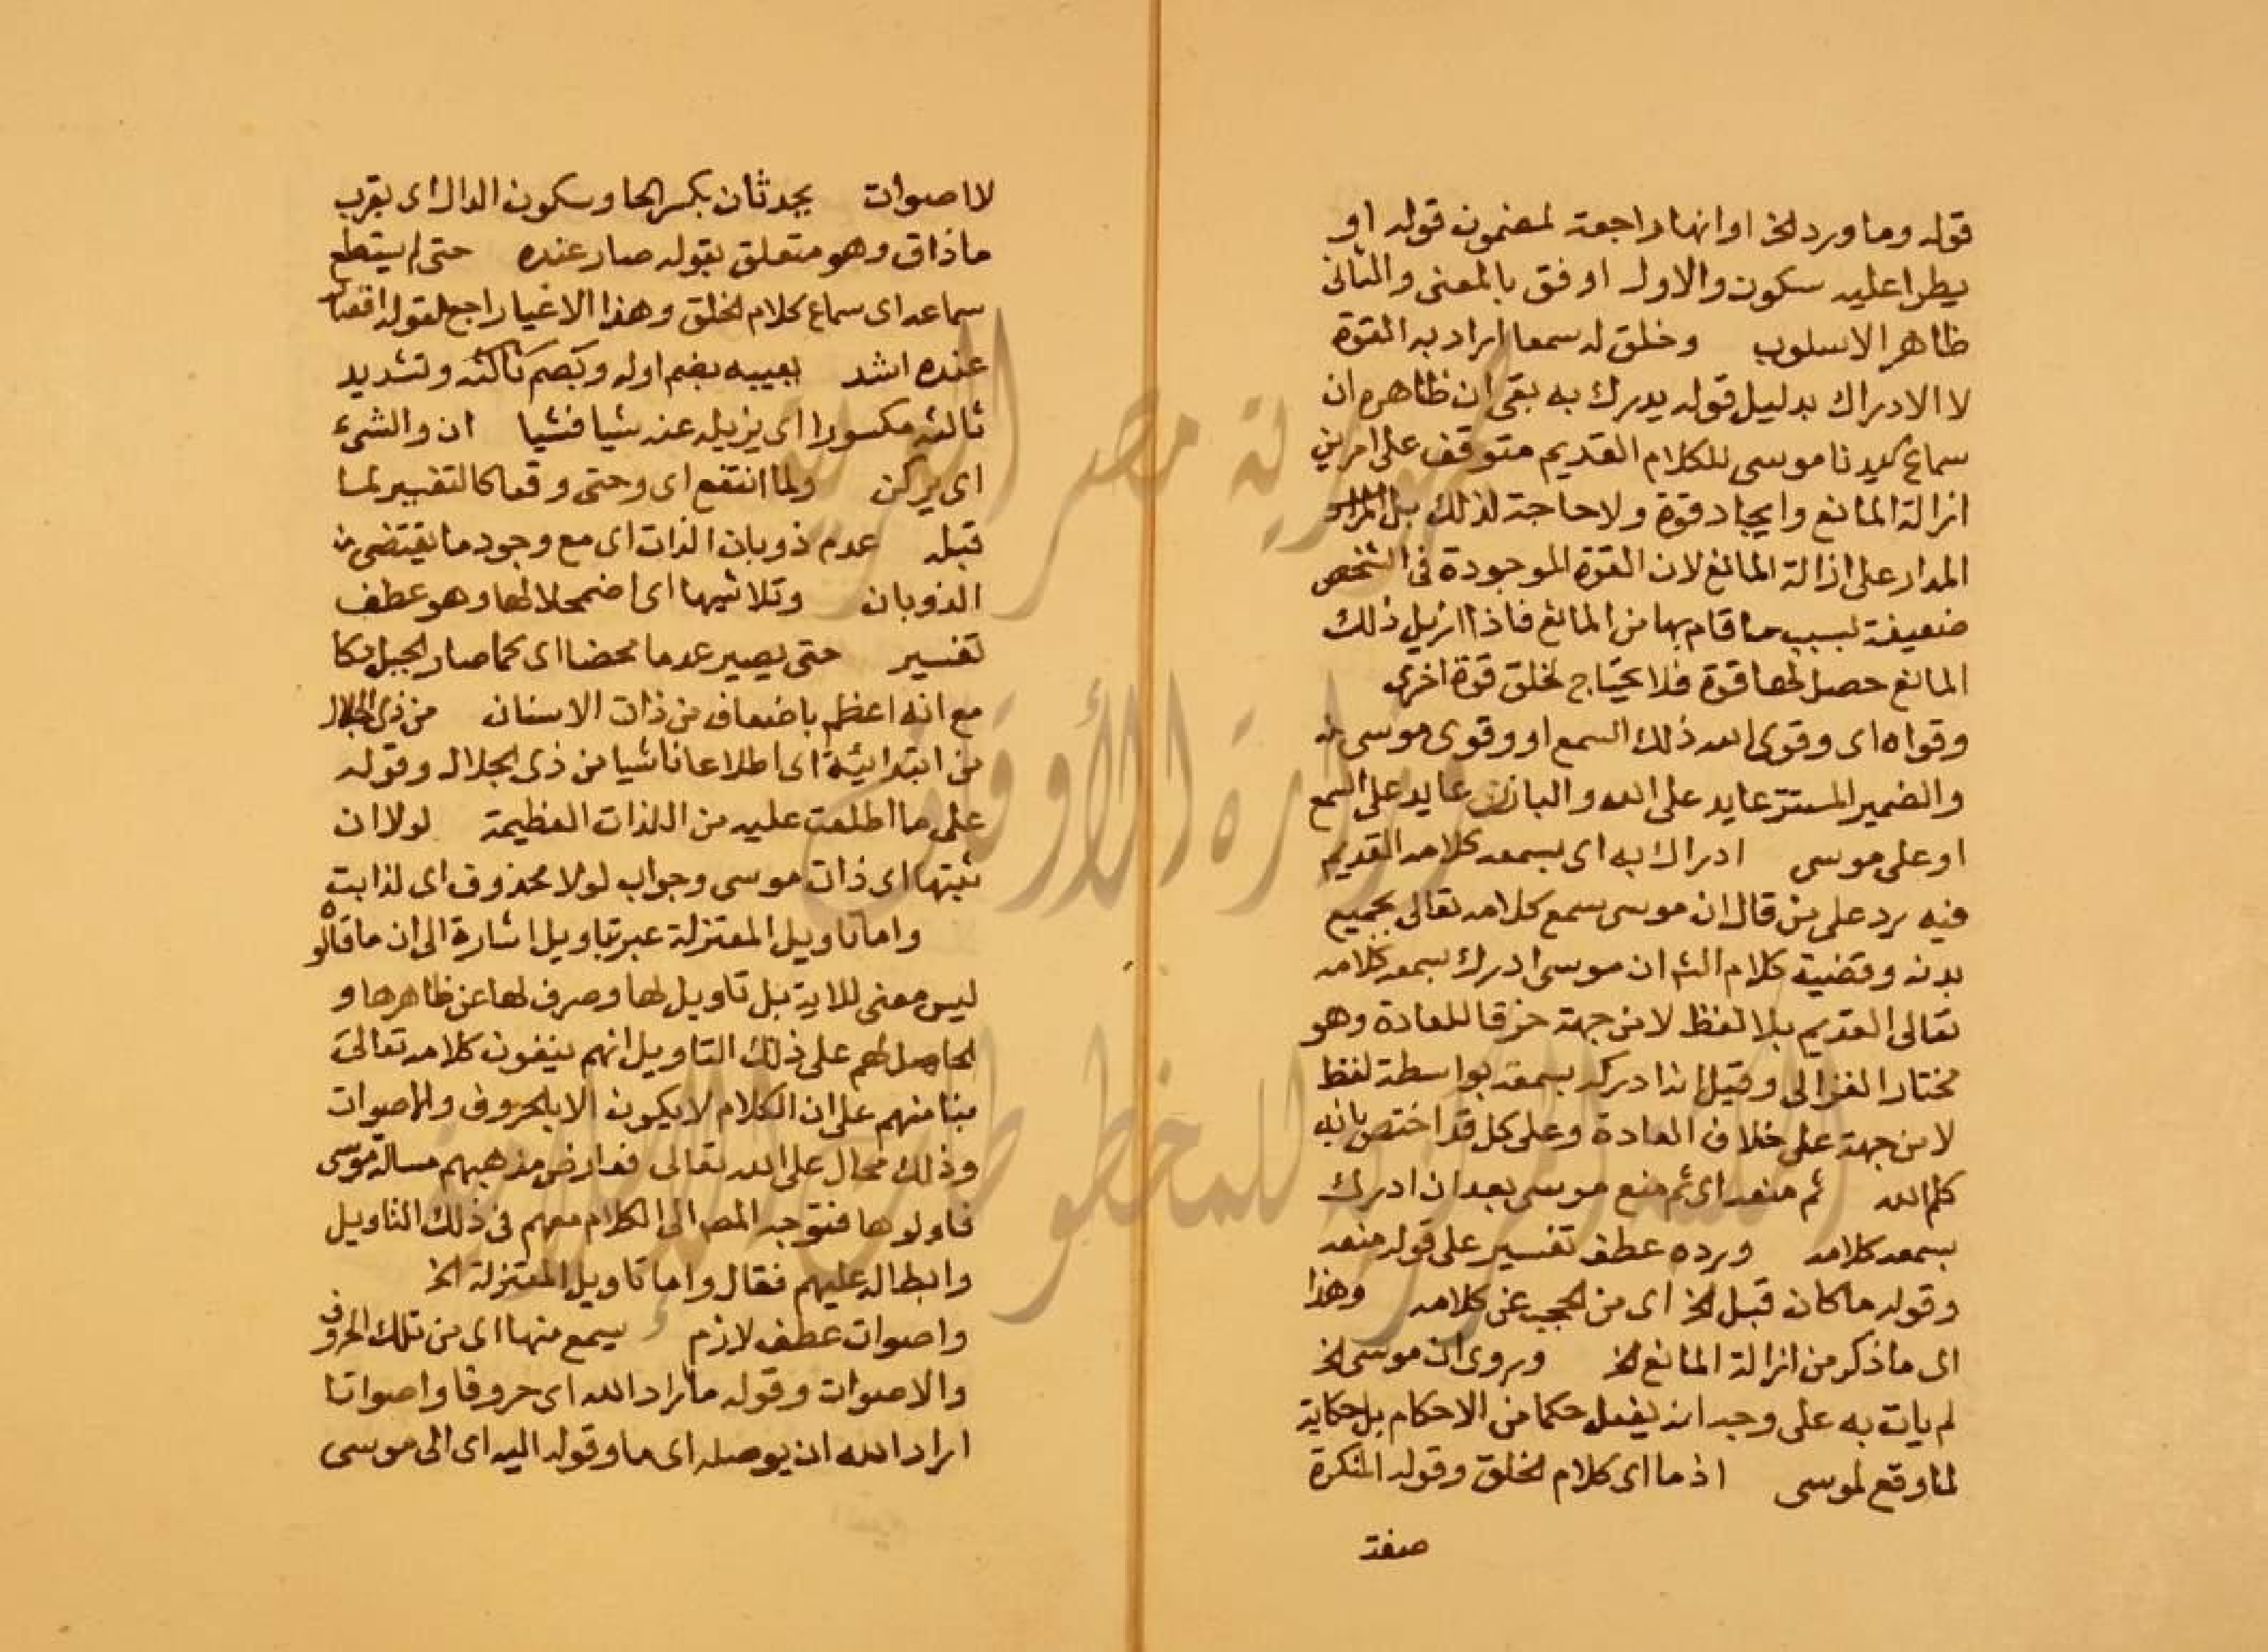 قوله وما ورد الخ او انها راجعة لمضمون قوله او
يطرا عليه سكون والاول اوفق بالمعنى والثاني
ظاهر الاسلوب وخلق له سمعا اراد به القوة
لا الادراك بدليل قوله يدرك به بقى ان ظاهره ان
سماع سيدنا موسى للكلام القديم متوقف على امرين
ازالة المانع وايجاد قوة ولا حاجة لذلك بل
المدار على ازالة المانع لان القوة الموجودة في الشخص
ضعيفة بسبب ما قام بها من المانع فاذا ازيل ذلك
المانع حصل لها قوة فلا يحتاج لخلق قوة اخرى
وقواه اى وقوى الله ذلك السمع او وقوى موسى
والضمير المستتر عايد على الله والبارز عايد على السمع
او على موسى ادراك به اى بسمعه كلامه القديم
فيه رد على من قال ان موسى سمع كلامه تعالى بجميع
بدنه وقضية كلام الش ان موسى ادرك بسمعه كلامه
تعالى القديم بلا لفظ لا من جهة خرقا للعادة وهو
مختار الغزالى وقيل انه ادركه بسمعه بواسطة لفظ
لا من جهة على خلاف العادة وعلى كل قد اختص بانه
كلم الله ثم منعه اى ثم منع موسى بعد ان ادرك
بسمعه كلامه ورده عطف تفسير على قوله منعه
وقوله ما كان قبل الخ اى من الحجب عن كلامه وهذا
اى ما ذكر من ازالة المانع الخ وروى ان موسى الخ
لم يات به على وجه انه يفعل حكما من الاحكام بل حكاية
لما وقع لموسى اذ ما اى كلام الخلق وقوله المنكرة
صفة
لا اصوات بحدثان بكسر الحا وسكون الدال اى بقرب
ما ذاق وهو متعلق بقوله صار عنده حتى لم يستطع
سماعه اى سماع كلام الخلق وهذا الاغيا راجع لقوله
عنده اشد بغيبه بضم اوله وتشديد
ثالثه مكسورا اى يزيله عنه شيا فشيا ان والشىء
اى يركن ولما انتفع اى وحتى وقعا كالتفسير لما
قبله عدم ذوبان الذات اى مع وجود ما يقتضى
الذوبان وتلاشيها اى اضمحلالها وهو عطف
تفسير حتى يصير عدما محضا اى كما صار الجبل دكا
مع انه اعظم باضعاف من ذات الانسان من ذى الجلال
من ابتدائية اى اطلاعا ناشيا من ذى الجلال وقوله
على ما اطلعت عليه من اللذات العظيمة لولا ان
ثبتها اى ذات موسى وجواب لولا محذوف اى لذابت
واما تاويل المعتزلة عبر بتاويل اشارة الى ان ما قالوه
ليس معنى للاية بل تاويل لها وصرف لها عن ظاهرها و
الحامل لهم على ذلك التاويل انهم ينفون كلامه تعالى
بنا منهم على ان الكلام لا يكون الا بالحروف والاصوات
وذلك محال على الله تعالى فعارض مذهبهم مسالة موسى
فاولوها فتوجه المص الى الكلام معهم في ذلك التاويل
وابطاله عليهم فقال واما تاويل المعتزلة الخ
واصوات عطف لازم يسمع منها اى من تلك الحروف
والاصوات وقوله ما اراد الله اى حروفا واصواتا
اراد الله ان يوصله اى ما وقوله اليه اى الى موسى
جمهورية مصر العربية
وزارة الأوقاف
للمخطوطات الإسلامية